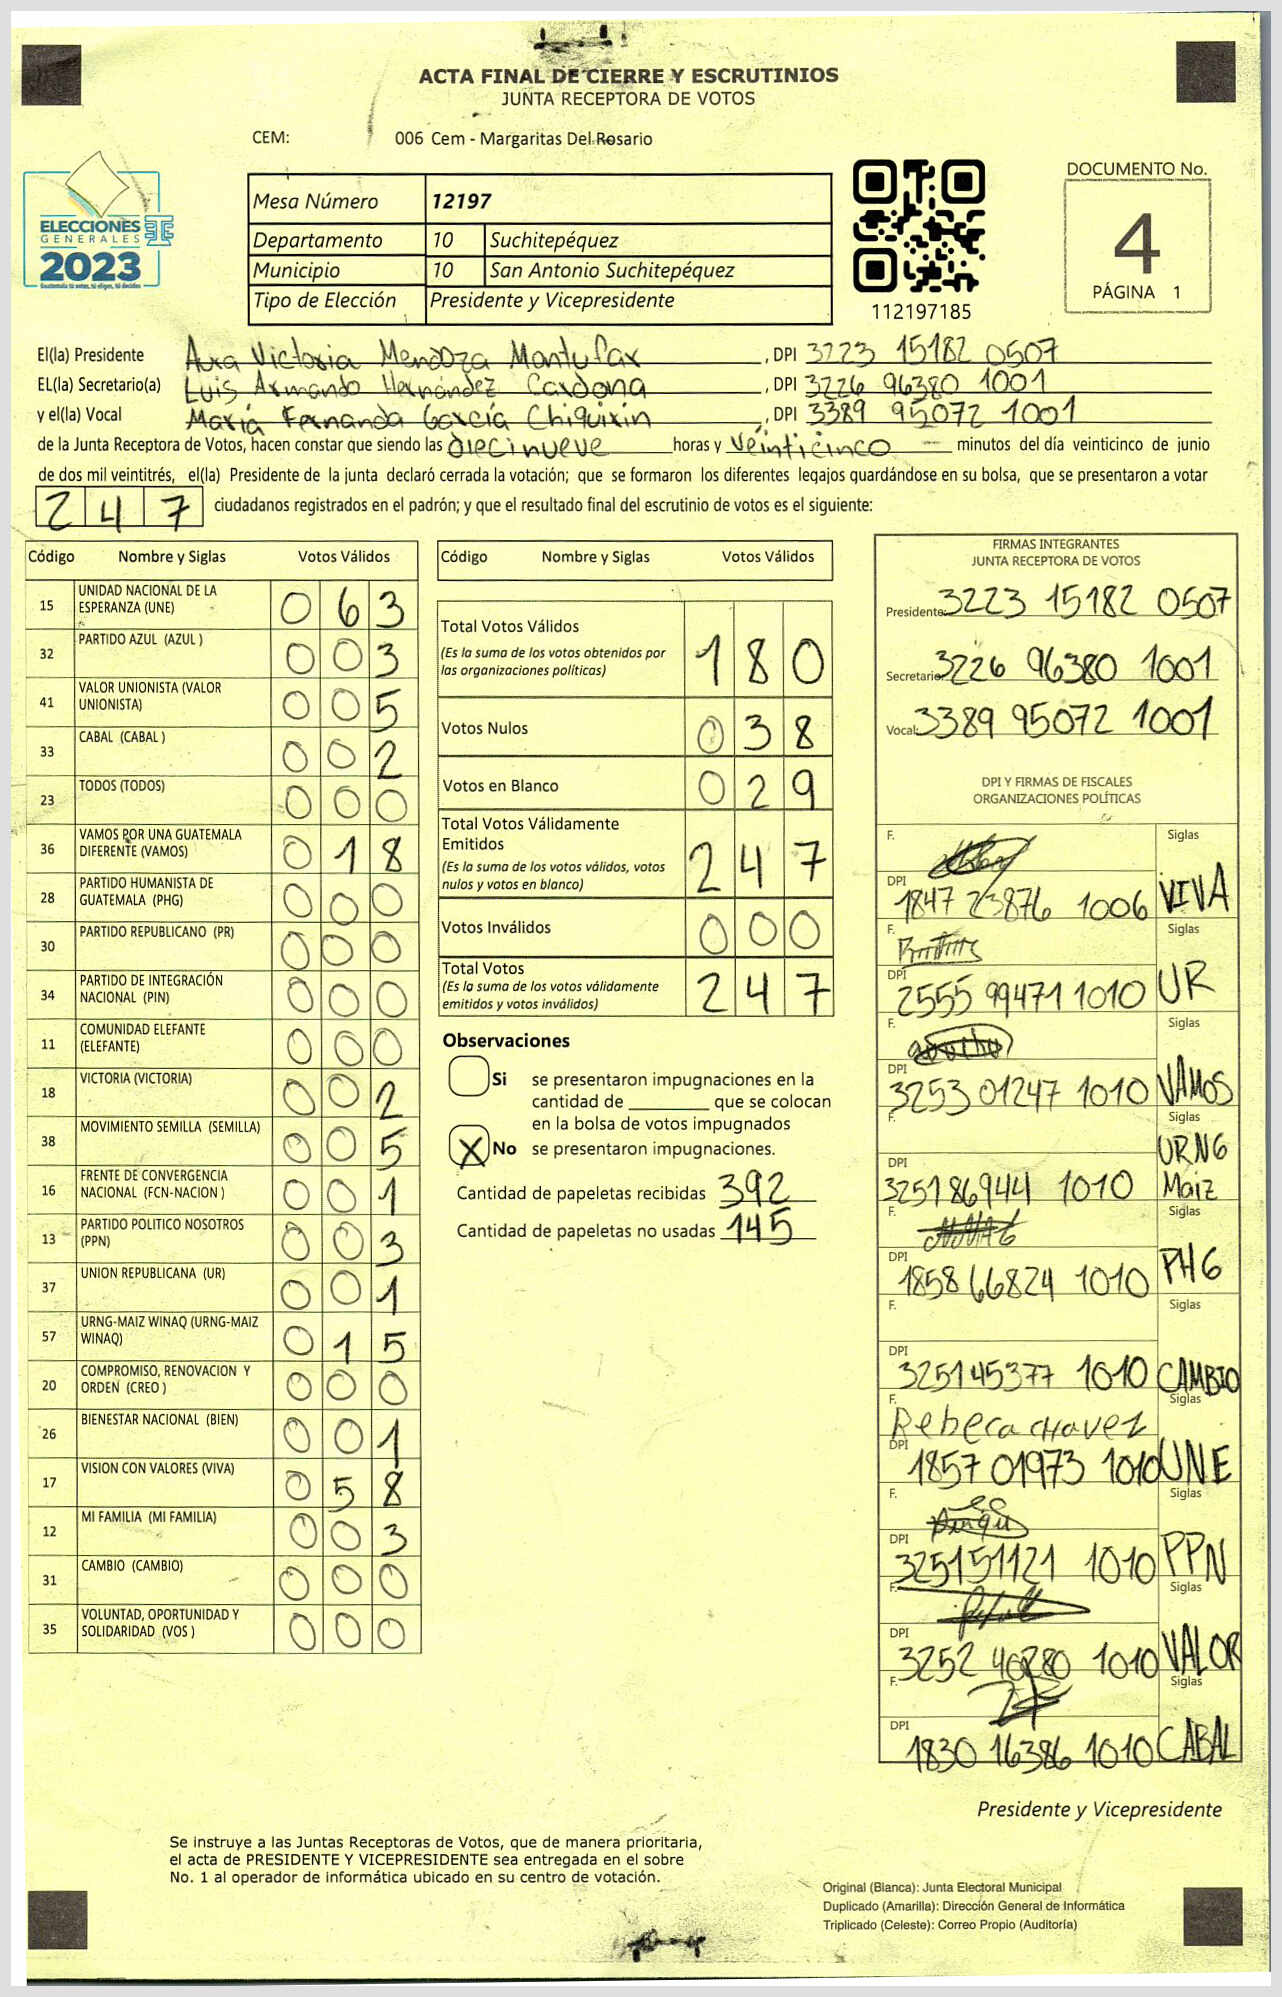 ACTA FINAL DE CIERRE Y ESCRUTINIOS
JUNTA RECEPTORA DE VOTOS
CEM: 006 Cem - Margaritas Del Rosario
ELECCIONES
GENERALES
2023
Guatemala tú votas, tú eliges, tú decides
Mesa Número 12197
Departamento 10 Suchitepéquez
Municipio 10 San Antonio Suchitepéquez
Tipo de Elección Presidente y Vicepresidente
112197185
DOCUMENTO No.
4
PÁGINA 1
El(la) Presidente Aura Victoria Mendoza Montufar, DPI 3223 15182 0507
EL(la) Secretario(a) Luis Armando Hernández Cardona, DPI 3226 96380 1001
y el(la) Vocal María Fernanda García Chiquixin, DPI 3389 95072 1001
de la Junta Receptora de Votos, hacen constar que siendo las diecinueve horas y veinticinco minutos del día veinticinco de junio
de dos mil veintitrés, el(la) Presidente de la junta declaró cerrada la votación; que se formaron los diferentes legajos guardándose en su bolsa, que se presentaron a votar
247 ciudadanos registrados en el padrón; y que el resultado final del escrutinio de votos es el siguiente:
Código Nombre y Siglas Votos Válidos
15 UNIDAD NACIONAL DE LA ESPERANZA (UNE) 063
32 PARTIDO AZUL (AZUL ) 003
41 VALOR UNIONISTA (VALOR UNIONISTA) 005
33 CABAL (CABAL ) 002
23 TODOS (TODOS) 000
36 VAMOS POR UNA GUATEMALA DIFERENTE (VAMOS) 018
28 PARTIDO HUMANISTA DE GUATEMALA (PHG) 000
30 PARTIDO REPUBLICANO (PR) 000
34 PARTIDO DE INTEGRACIÓN NACIONAL (PIN) 000
11 COMUNIDAD ELEFANTE (ELEFANTE) 000
18 VICTORIA (VICTORIA) 002
38 MOVIMIENTO SEMILLA (SEMILLA) 005
16 FRENTE DE CONVERGENCIA NACIONAL (FCN-NACION ) 001
13 PARTIDO POLITICO NOSOTROS (PPN) 003
37 UNION REPUBLICANA (UR) 001
57 URNG-MAIZ WINAQ (URNG-MAIZ WINAQ) 015
20 COMPROMISO, RENOVACION Y ORDEN (CREO ) 000
26 BIENESTAR NACIONAL (BIEN) 001
17 VISION CON VALORES (VIVA) 058
12 MI FAMILIA (MI FAMILIA) 003
31 CAMBIO (CAMBIO) 000
35 VOLUNTAD, OPORTUNIDAD Y SOLIDARIDAD (VOS ) 000
Código Nombre y Siglas Votos Válidos
Total Votos Válidos 180
(Es la suma de los votos obtenidos por
las organizaciones políticas)
Votos Nulos 038
Votos en Blanco 029
Total Votos Válidamente
Emitidos 247
(Es la suma de los votos válidos, votos
nulos y votos en blanco)
Votos Inválidos 000
Total Votos 247
(Es la suma de los votos válidamente
emitidos y votos inválidos)
Observaciones
Si se presentaron impugnaciones en la
cantidad de ________ que se colocan
en la bolsa de votos impugnados
X No se presentaron impugnaciones.
Cantidad de papeletas recibidas 392
Cantidad de papeletas no usadas 145
FIRMAS INTEGRANTES
JUNTA RECEPTORA DE VOTOS
Presidente: 3223 15182 0507
Secretario: 3226 96380 1001
Vocal: 3389 95072 1001
DPI Y FIRMAS DE FISCALES
ORGANIZACIONES POLÍTICAS
F. Siglas
DPI 1847 23876 1006 VIVA
F. Siglas
DPI 2555 99471 1010 UR
F. Siglas
DPI 3253 01247 1010 VAMOS
F. Siglas
DPI 3251 86944 1010 URNG Maiz
F. Siglas
DPI 1858 66824 1010 PHG
F. Siglas
DPI 3251 45377 1010 CAMBIO
F. Rebeca chavez Siglas
DPI 1857 01973 1010 UNE
F. Siglas
DPI 3251 51121 1010 PPN
F. Siglas
DPI 3252 40280 1010 VALOR
F. Siglas
DPI 1830 16386 1010 CABAL
Presidente y Vicepresidente
Se instruye a las Juntas Receptoras de Votos, que de manera prioritaria,
el acta de PRESIDENTE Y VICEPRESIDENTE sea entregada en el sobre
No. 1 al operador de informática ubicado en su centro de votación.
Original (Blanca): Junta Electoral Municipal
Duplicado (Amarilla): Dirección General de Informática
Triplicado (Celeste): Correo Propio (Auditoría)